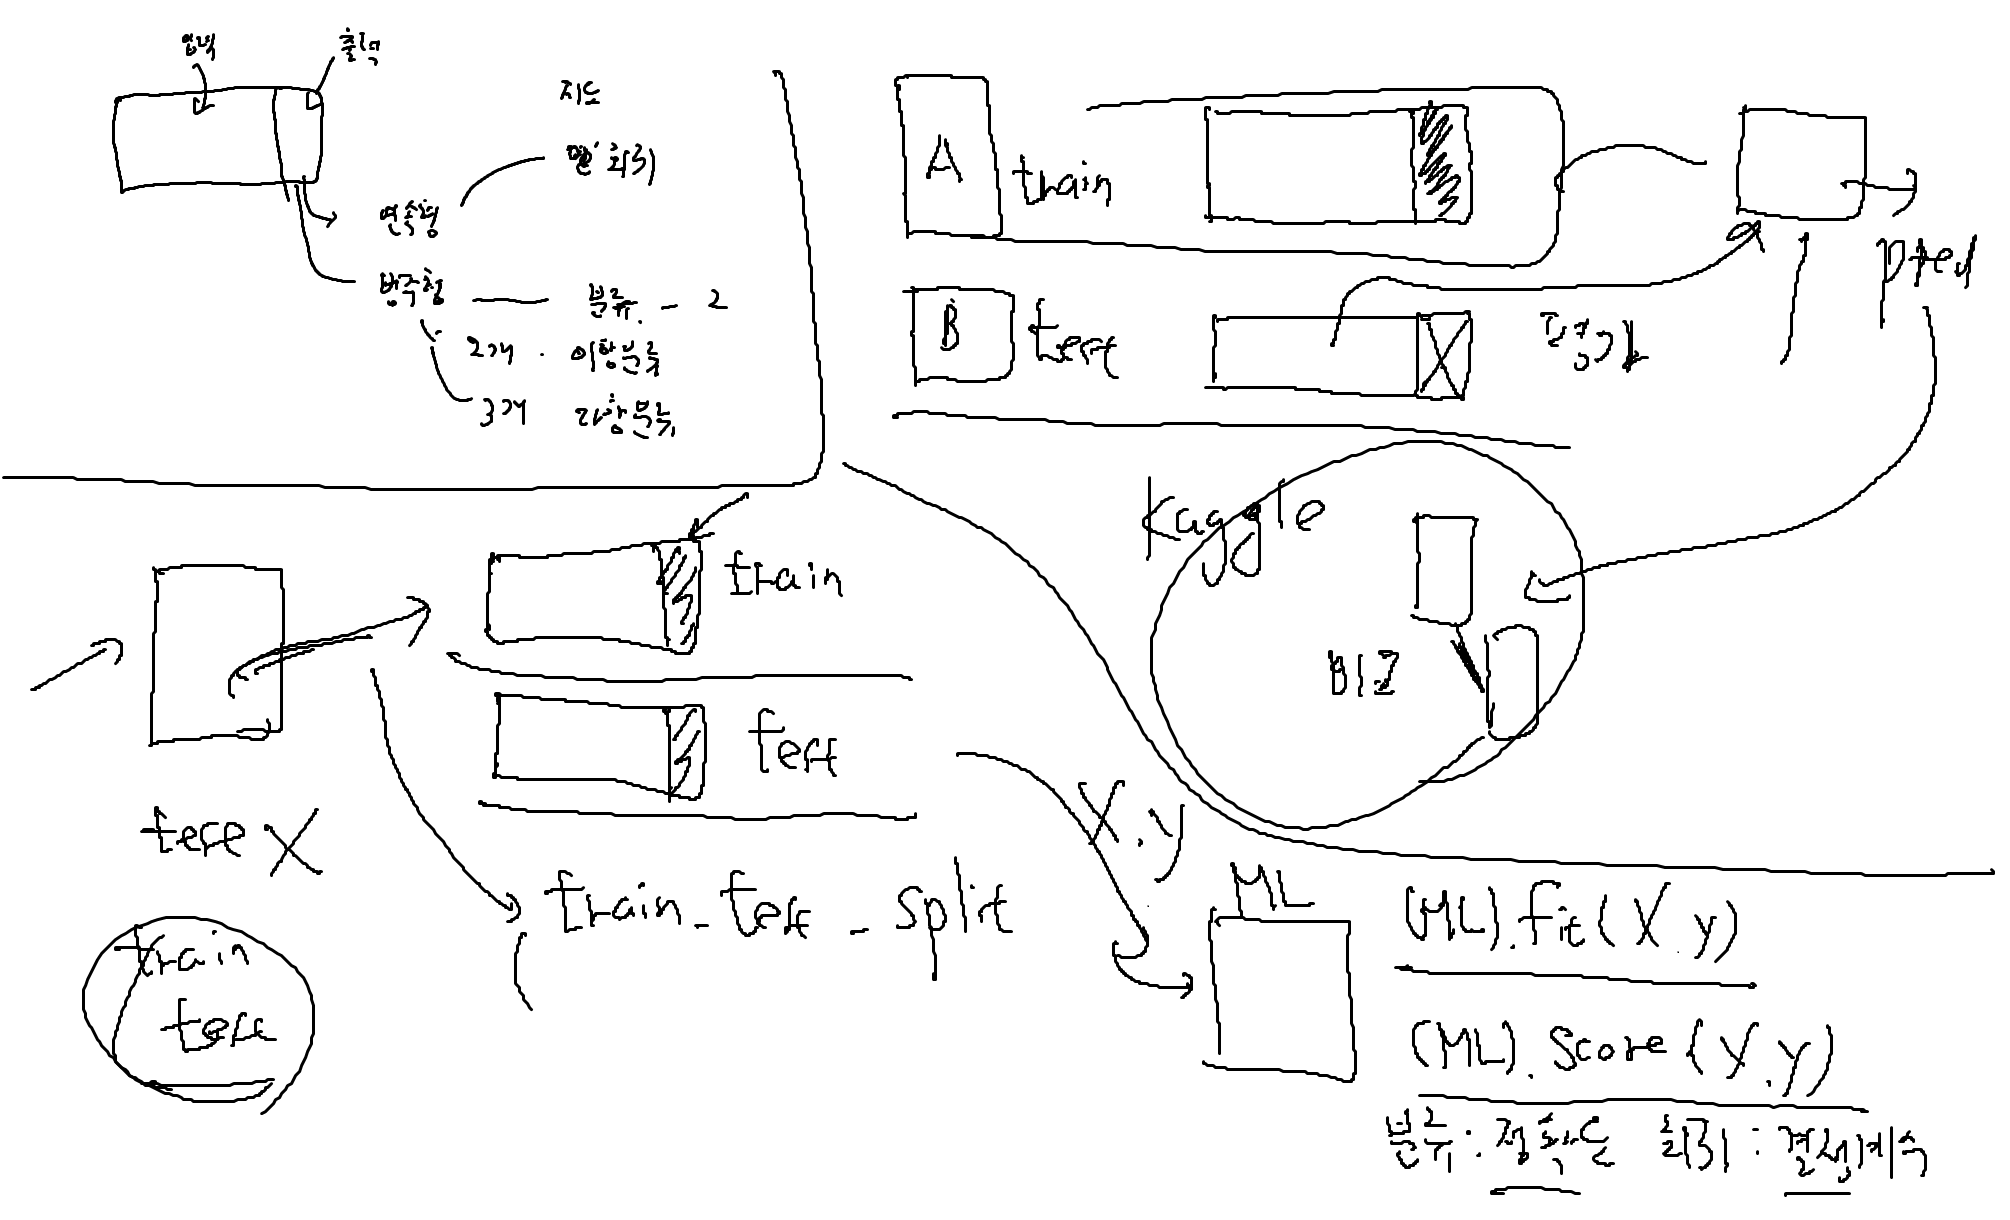 입력
출력
지도
연속형
회귀
범주형 분류 - 2
2개 이항분류
3개 다항분류
A train
B test
평가
pred
kaggle
BIZ
train
test
test X
train
test
train_test_split
X, y
ML
(ML).fit(X, y)
(ML).score(X, y)
분류 : 정확도 회귀 : 결정계수